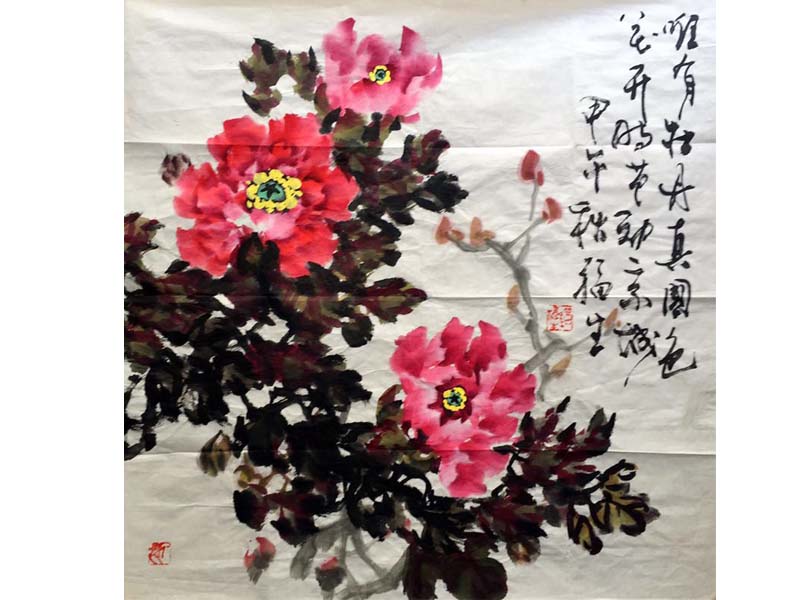 唯有牡丹真國色
花开時节動京城
甲午
福生